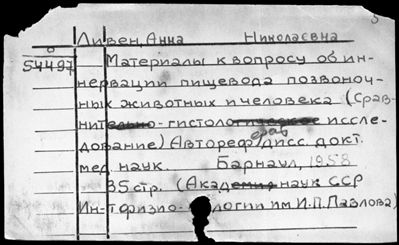 5
Ливен, Анна Николаевна
54497 Материалы к вопросу об ин-
нервации пищевода позвоноч-
ных животных и человека (Срав-
нительно-гистологическое иссле-
дование) Автореф. дисс. докт.
мед. наук. Барнаул, 1958
35 стр. (Академия наук ССР
Ин-т физио-логии им И.П.Павлова)